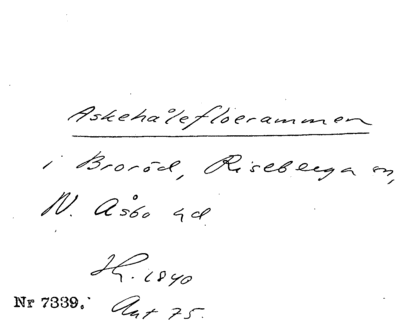 Askehålefloerammen
i Broröd, Riseberga sn,
N. Åsbo hd
Hg. 1840
Nr 7339. Ant 75.